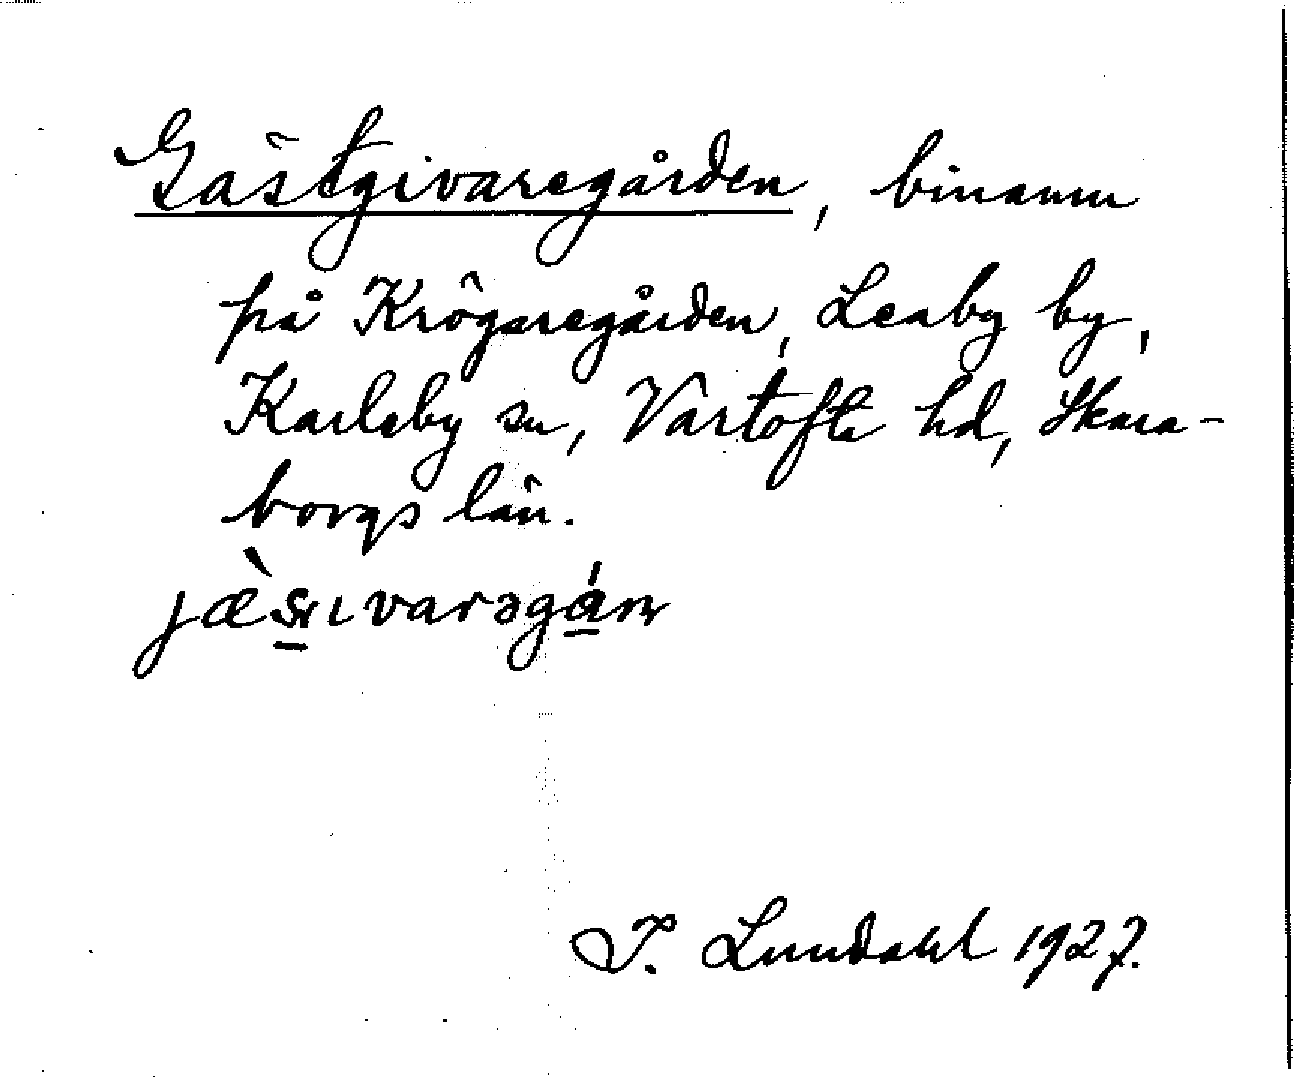 Gästgivaregården, binamn
på Krögaregården, Leaby by,
Karleby sn, Vartofta hd, Skara-
borgs län.
I. Lundahl 1927.